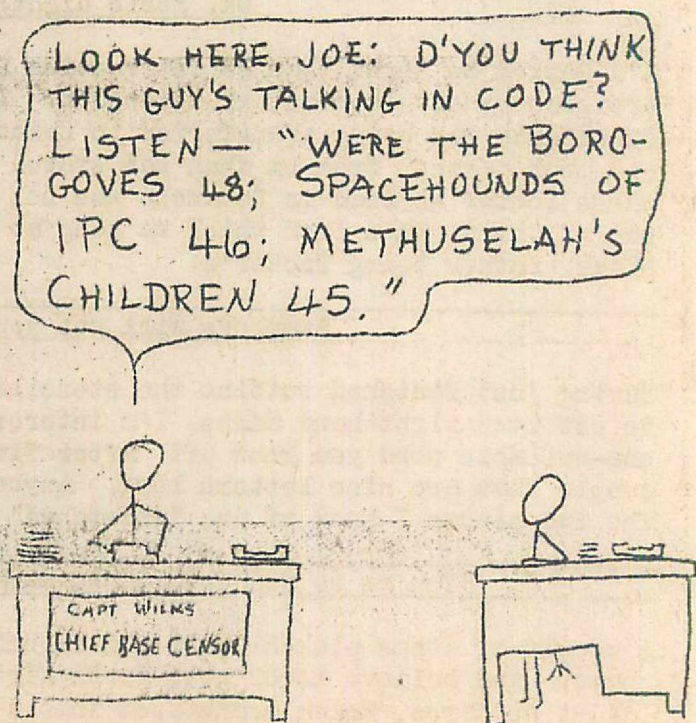 LOOK HERE, JOE: D'YOU THINK
THIS GUY'S TALKING IN CODE?
LISTEN — "WERE THE BORO-
GOVES 48; SPACEHOUNDS OF
IPC 46; METHUSELAH'S
CHILDREN 45."
CAPT WILKS
CHIEF BASE CENSOR